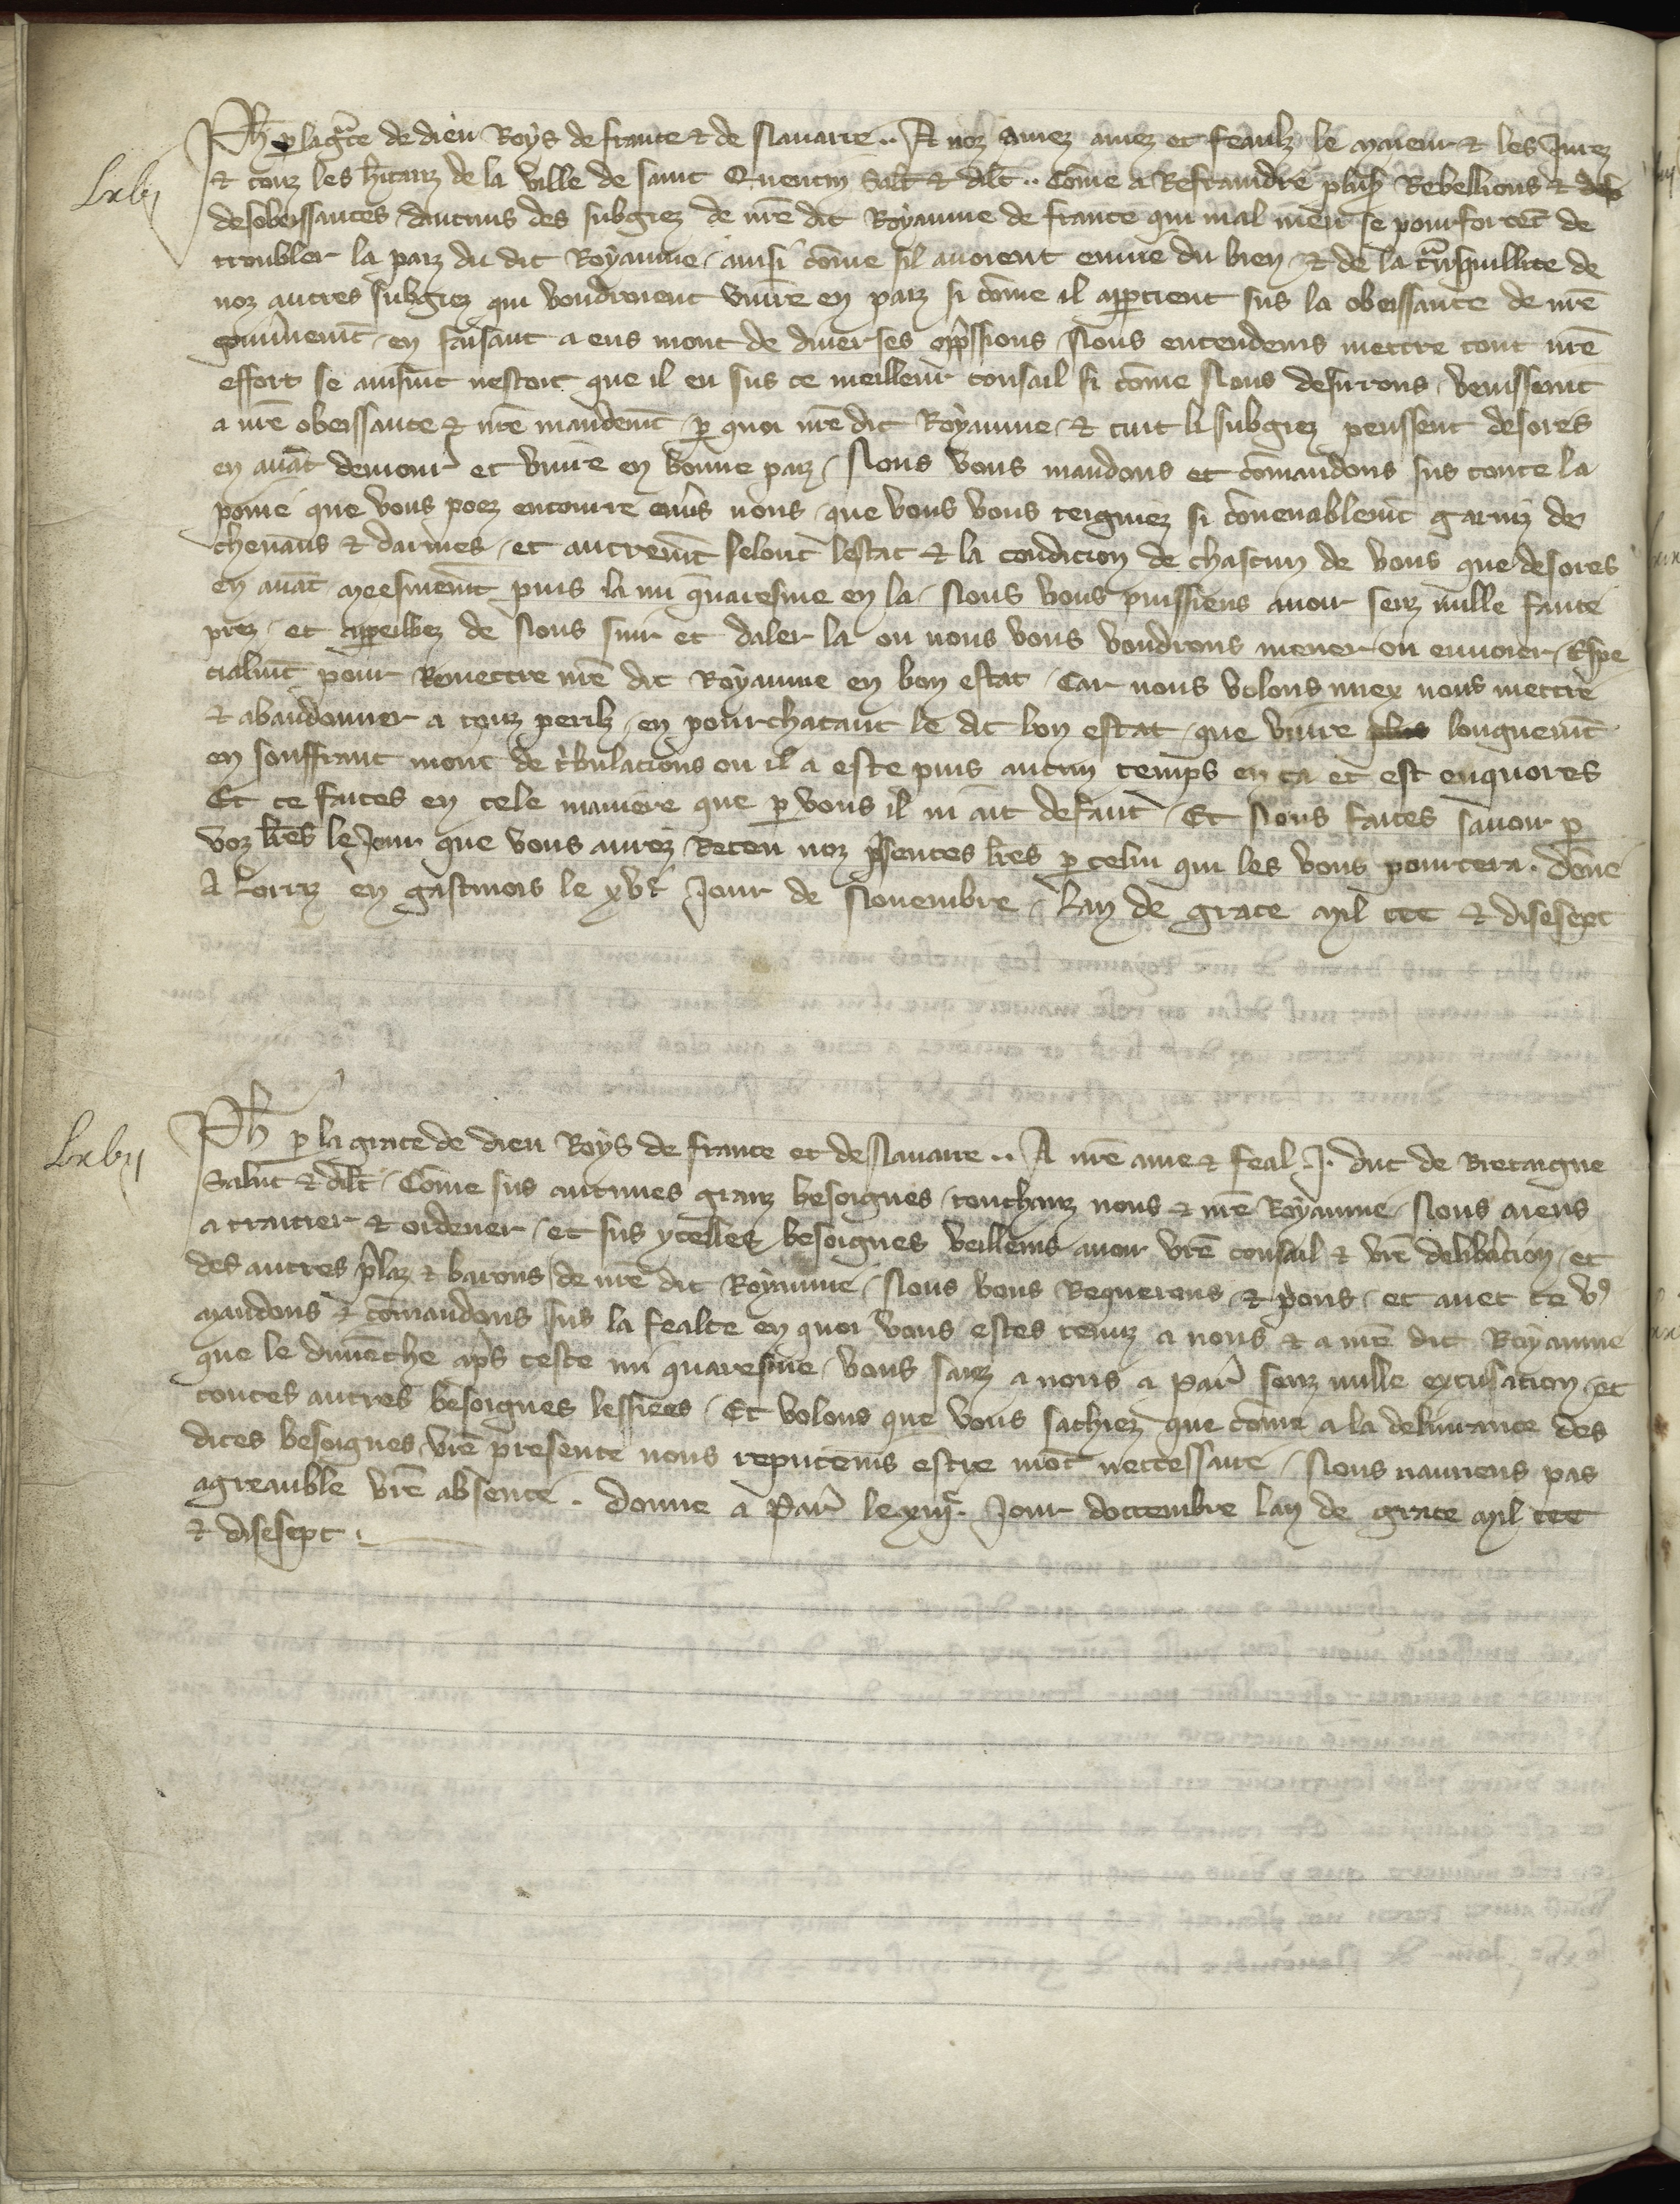 Ph p la grace de dieu Roys de france & de Navarre .. A noz amez amez et feaulz le maieur & les Jurez
Lxvj
& touz les hitanz de la ville de saint Quentin Salt & dilt .. Cōme a Refraindre plusrs Rebellions & des
desobeissances daucuns des subgiez de nrē dit Royaume de france qui mal menīt se pourforcēt de
troubler la paiz du dit Royaume / ainsi cōme sil avoient envie du bien / & de la trāsquillite de
noz autres subgiez qui voudroient vivre en paiz si cōme il appartient sus la obeissance de nrē
gouvnement / en faisant a eus mout de diverses oppssions / Nous entendens mettre tout nrē
effort se ainsint nestoit que il eu sus ce meilleur consail si cōme Nous desirrons / venissent
a nrē obeissance & nrē mandemt / p quoi nrē dit Royaume / & tuit li subgiez peussent desores
en avāt demourr et vivre en bonne paiz / Nous vous mandons et cōmandons sus toute la
poine que vous poez encourre envs nous / que vous vous teigniez si cōvenablemt garniz de
chevaus & darmes / et autremt selonc lestat & la condicion de chascun de vous que desores
en avāt meesmemt puis la mi quaresme en la / Nous vous puissiens avoir senz nulle faute
prez / et appeillez de Nous suir et daler la ou nous vous voudrons mener ou envoier / Espe
cialmt pour Remettre nrē dit Royaume en bon estat / Car nous volons miex nous mettre
& abandonner a touz perilz / en pourchacant le dit bon estat / que vivre plus longuemt
en souffrant mout de tribulacions ou il a este puis aucun temps en ca et est enquores
Et ce faites en cele maniere que p vous il ni ait defaut / Et Nous faites savoir p
voz lrēs le Jour que vous aurez Receu noz psentes lrēs p celui qui les vous pourtera . Donē
A Lorriz en gastinois le xvje Jour de Novembre / Lan de grace mil ccc & disesept
Lxvij
Ph p la grace de dieu Roys de france et de Navarre .. A nrē ame & feal .J. duc de Bretaigne
Salut & dilt / Cōme sus aucunes granz besoignes / touchanz nous & nrē Royaume / Nous aiens
a traitier & ordener / et sus ycelles besoignes veillens avoir vrē consail & vrē delibacion / et
des autres plaz & barons de nrē dit Royaume / Nous vous Requerons & pons / et avec ce vs
mandons & cōmandons sus la fealte en quoi vous estes tenuz a nous & a nrē dit Royaume
que le dimēche aps ceste mi quaresme / vous saiez a nous a Parr senz nulle excusacion / et
toutes autres besoignes lessiees / Et volons que vous sachiez que cōme a la delivrance des
dites besoignes vrē presence nous reputens estre mōt neccessaire / Nous naurens pas
agreauble vrē absence . Donne a Parr le xiije . Jour doctembre lan de grace mil ccc
& disesept .